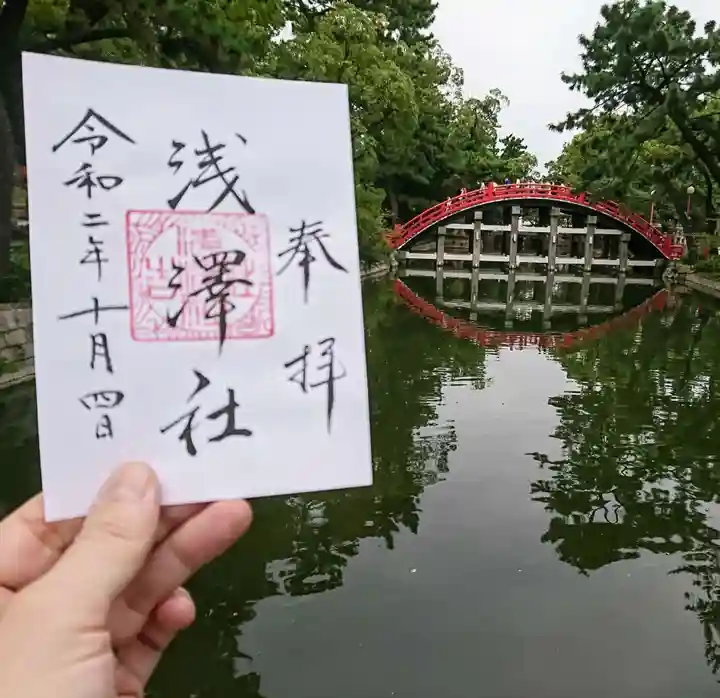 奉拝
浅澤社
令和二年十月四日